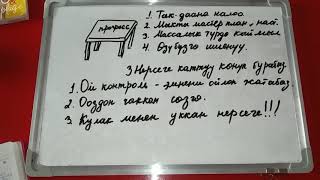 прогресс
1. Так-даана налоо.
2. Микти мастер план, най.
3. Массалык түрдө каймыл
4. Өзүбүзгө ишенүү.
3 Нерсеге каттуу көңүл бурабыз
1. Ой контроль - эмнени ойлоп жатабыз.
2. Ооздон чыккан сөзгө.
3. Кулак менен уккан нерсеге!!!